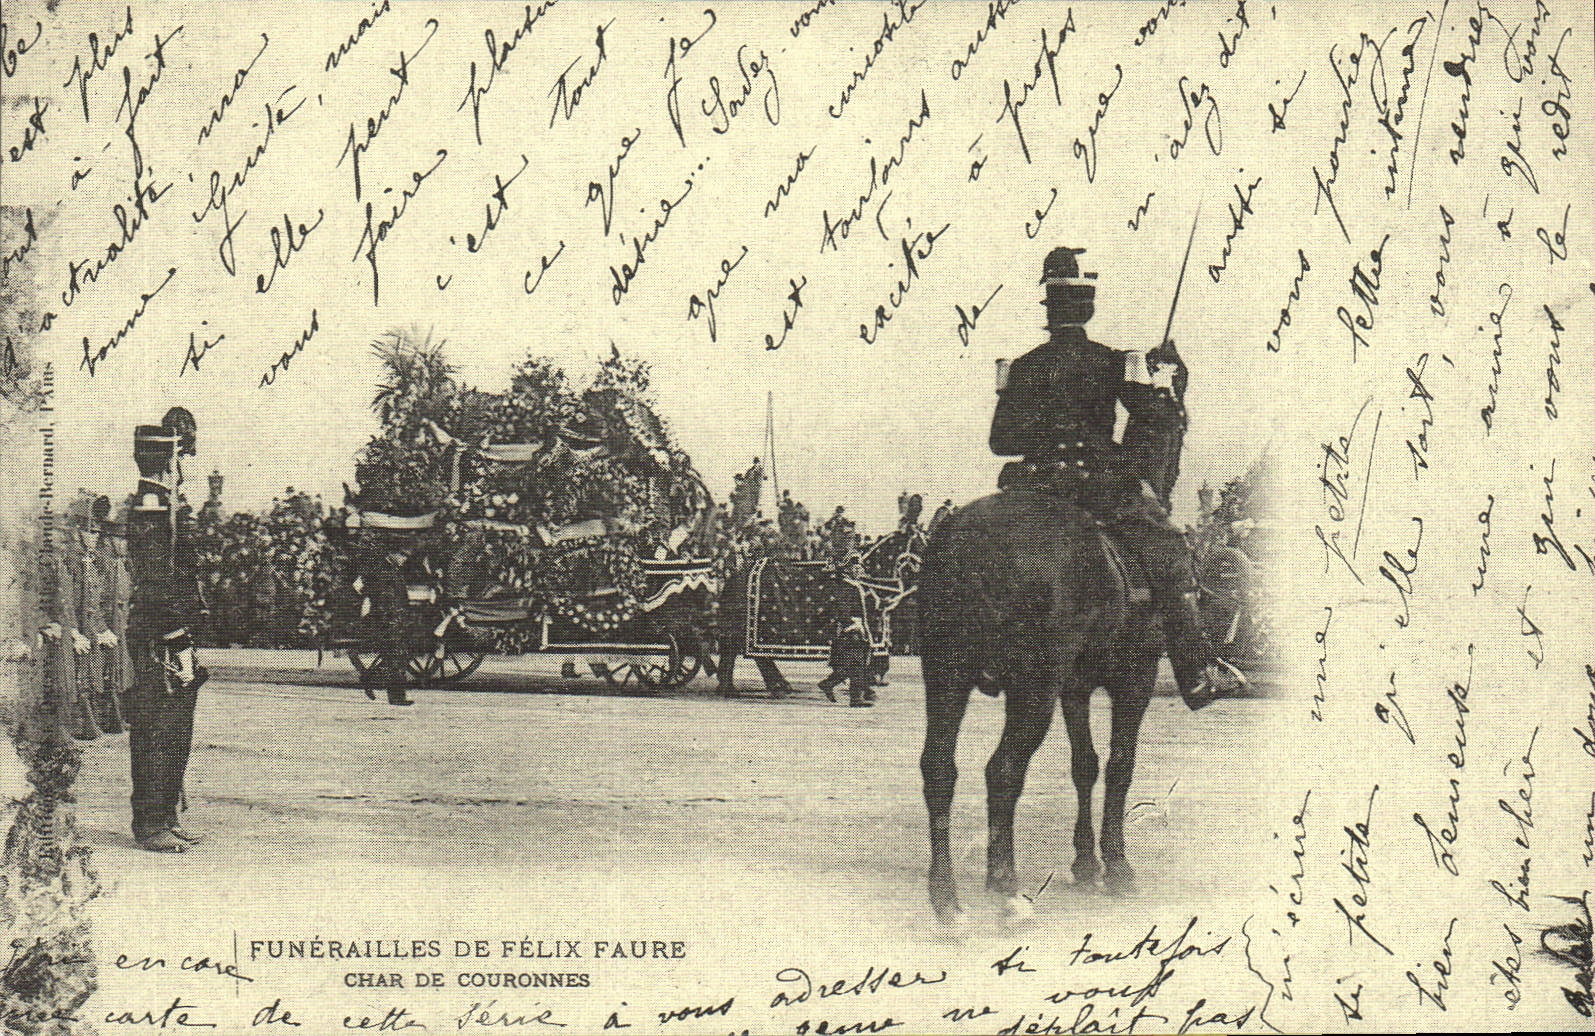 Ce
est plus
tout à fait
actualité, ma
bonne Guité, mais
si elle peut
vous faire plaisir
c'est tout
ce que je
désire... Savez-vous
que ma curiosité
est toujours aussi
excitée à propos
de ce que vous
m'avez dit,
aussi si
vous pouviez
m'écrire une petite lettre intime,
si petite qu'elle soit, vous rendriez
bien heureuse une amie à qui vous
êtes bien chère et qui vous le redit
un doux
Claude-Bernard, PARIS
FUNÉRAILLES DE FÉLIX FAURE
CHAR DE COURONNES
encore
carte de cette série à vous adresser si toutefois
genre ne vous déplaît pas